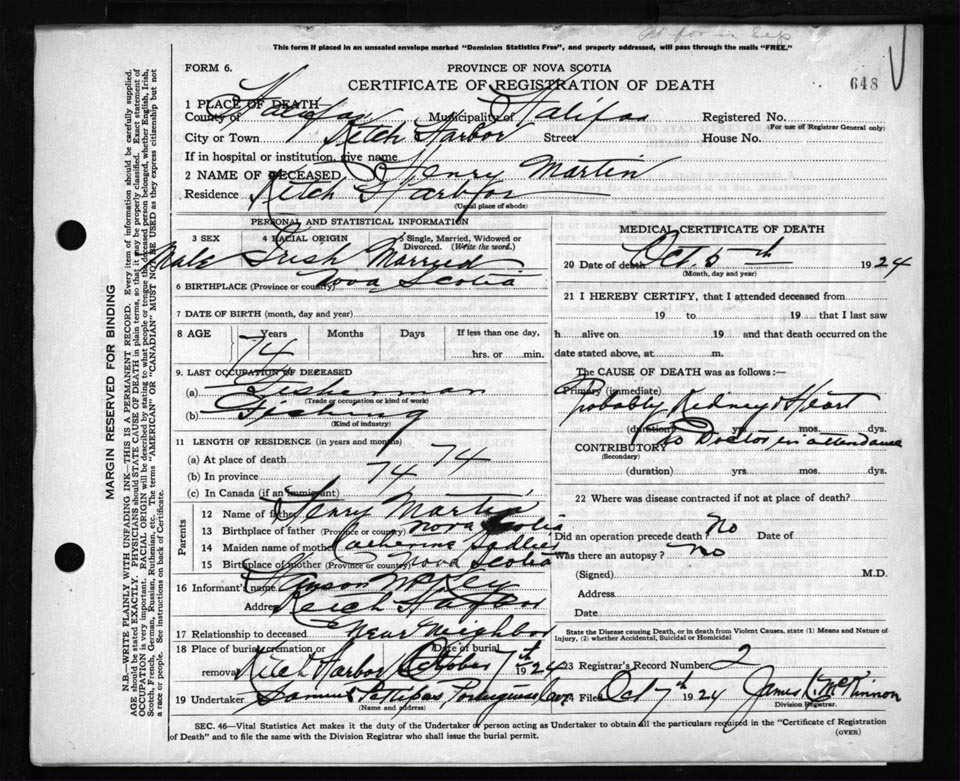 This form if placed in an unsealed envelope marked "Dominion Statistics Free", and properly addressed, will pass through the mails "FREE."
FORM 6.
PROVINCE OF NOVA SCOTIA
CERTIFICATE OF REGISTRATION OF DEATH
648
1 PLACE OF DEATH
County of Halifax Municipality of Halifax Registered No.
(For use of Registrar General only)
City or Town Ketch Harbor Street House No.
If in hospital or institution, give name
2 NAME OF DECEASED Henry Martin
Residence Ketch Harbor
(Usual place of abode)
PERSONAL AND STATISTICAL INFORMATION
3 SEX 4 RACIAL ORIGIN 5 Single, Married, Widowed or Divorced. (Write the word.)
Male Irish Married
6 BIRTHPLACE (Province or country) Nova Scotia
7 DATE OF BIRTH (month, day and year)
8 AGE Years Months Days If less than one day,
74 hrs. or min.
9. LAST OCCUPATION OF DECEASED
(a) Fisherman
(Trade or occupation or kind of work)
(b) Fishing
(Kind of industry)
11 LENGTH OF RESIDENCE (in years and months)
(a) At place of death 74
(b) In province 74
(c) In Canada (if an immigrant)
Parents
12 Name of father Henry Martin
13 Birthplace of father (Province or country) Nova Scotia
14 Maiden name of mother Catherine
15 Birthplace of mother (Province or country) Nova Scotia
16 Informant's name
Address Ketch
17 Relationship to deceased Near Neighbor
18 Place of burial, cremation or removal Date of burial
Ketch Harbor October 7th 1924
19 Undertaker Samuel Portuguese Cove
(Name and address)
MEDICAL CERTIFICATE OF DEATH
20 Date of death Oct 5th 1924
(Month, day and year)
21 I HEREBY CERTIFY, that I attended deceased from
19 to 19 that I last saw
h alive on 19 and that death occurred on the
date stated above, at m.
The CAUSE OF DEATH was as follows:—
Primary (immediate)
Probably Kidney & Heart
(duration) yrs. mos. dys.
No Doctor in attendance
CONTRIBUTORY
(Secondary)
(duration) yrs. mos. dys.
22 Where was disease contracted if not at place of death?
Did an operation precede death? No Date of
Was there an autopsy? No
(Signed) M.D.
Address
Date
State the Disease causing Death, or in death from Violent Causes, state (1) Means and Nature of Injury, (2) whether Accidental, Suicidal or Homicidal
23 Registrar's Record Number 2
Filed Oct 7th 1924 James K. McKinnon
Division Registrar.
SEC. 46—Vital Statistics Act makes it the duty of the Undertaker or person acting as Undertaker to obtain all the particulars required in the "Certificate of Registration
of Death" and to file the same with the Division Registrar who shall issue the burial permit.
(OVER)
MARGIN RESERVED FOR BINDING
N.B.—WRITE PLAINLY WITH UNFADING INK—THIS IS A PERMANENT RECORD. Every item of information should be carefully supplied.
AGE should be stated EXACTLY. PHYSICIANS should STATE CAUSE OF DEATH in plain terms, so that it may be properly classified. Exact statement of
OCCUPATION is very important. RACIAL ORIGIN will be described by stating to what people or tongue the deceased person belonged, whether English, Irish,
Scotch, French, German, Russian, Ruthenian, etc. The terms "AMERICAN" or "CANADIAN" MUST NOT BE USED as they express citizenship but not
a race or people. See instructions on back of Certificate.